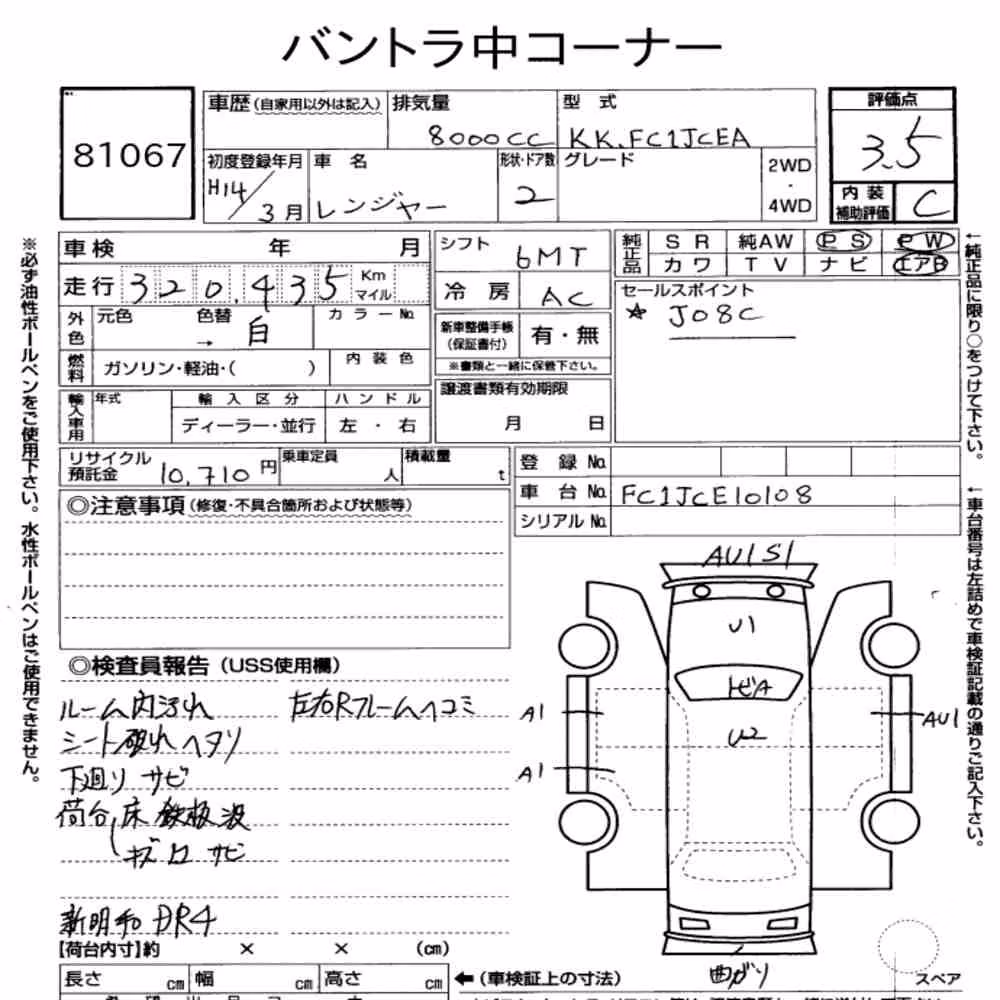 バントラ中コーナー
81067
車歴 (自家用以外は記入)
排気量
8000CC
型式
KK.FC1JCEA
評価点
3.5
初度登録年月
H14/3月
車名
レンジャー
形状・ドア数
2
グレード
2WD
・
4WD
内装
補助評価
C
※必ず油性ボールペンをご使用下さい。水性ボールペンはご使用できません。
車検 年 月
シフト
6MT
純正品
SR 純AW PS PW
カワ TV ナビ エアB
←純正品に限り○をつけて下さい。
走行 320,435 Km マイル
冷房
AC
セールスポイント
☆ J08C
外色
元色 色替 カラーNo
→ 白
新車整備手帳
(保証書付)
有・無
※書類と一緒に保管下さい。
燃料
ガソリン・軽油・( )
内装色
輸入車用
年式
輸入区分
ディーラー・並行
ハンドル
左・右
譲渡書類有効期限
月 日
リサイクル
預託金 10,710 円
乗車定員
人
積載量
t
登録No
車台No FC1JCE10108
シリアルNo
←車台番号は左詰めで車検証記載の通りご記入下さい。
◎注意事項(修復・不具合箇所および状態等)
◎検査員報告(USS使用欄)
ルーム内汚れ 左右Rフレームヘコミ
シート破れ ヘタリ
下廻り サビ
荷台 床鉄板波
キズ サビ
新明和 DR4
AU1 S1
U1
トビA
A1
AU1
U2
A1
曲がり
スペア
【荷台内寸】約 × × (cm)
長さ cm 幅 cm 高さ cm
←(車検証上の寸法)